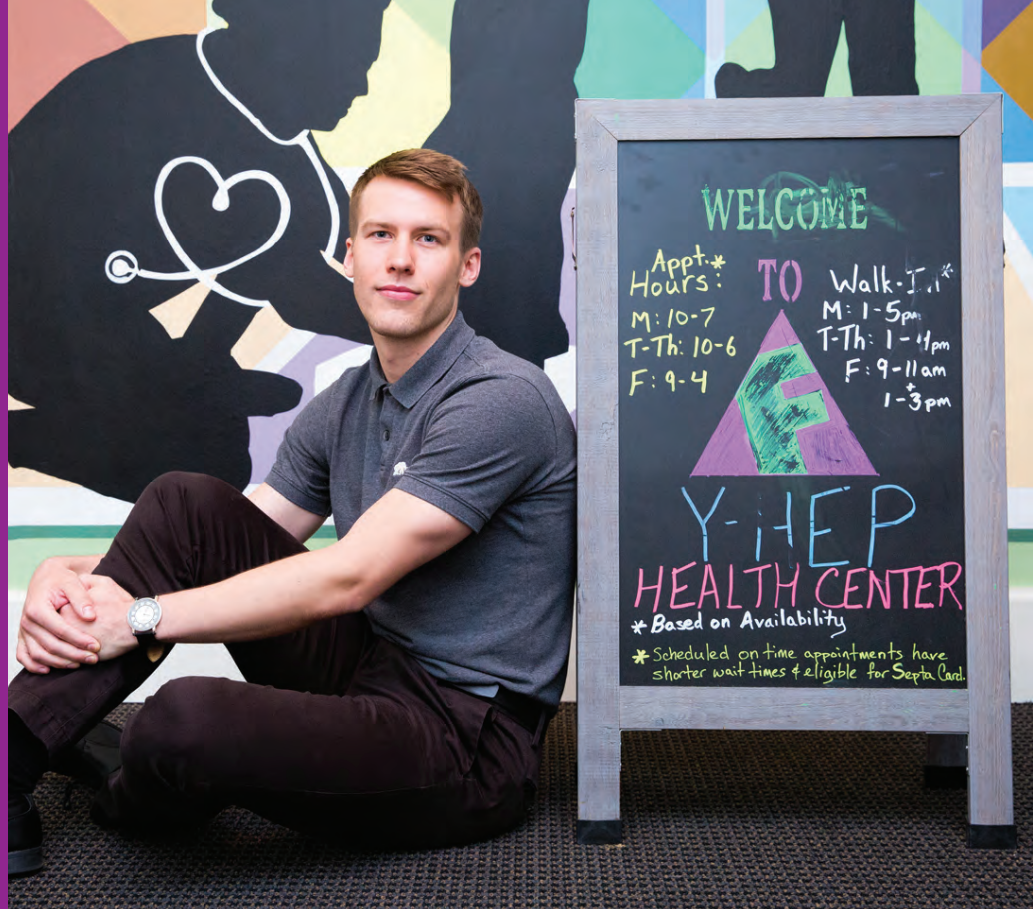 WELCOME
TO
Appt.*
Hours:
M: 10-7
T-Th: 10-6
F: 9-4
Walk-In*
M: 1-5pm
T-Th: 1-4pm
F: 9-11am
+
1-3pm
F
Y-HEP
HEALTH CENTER
* Based on Availability
* Scheduled on time appointments have
shorter wait times & eligible for Septa Card.